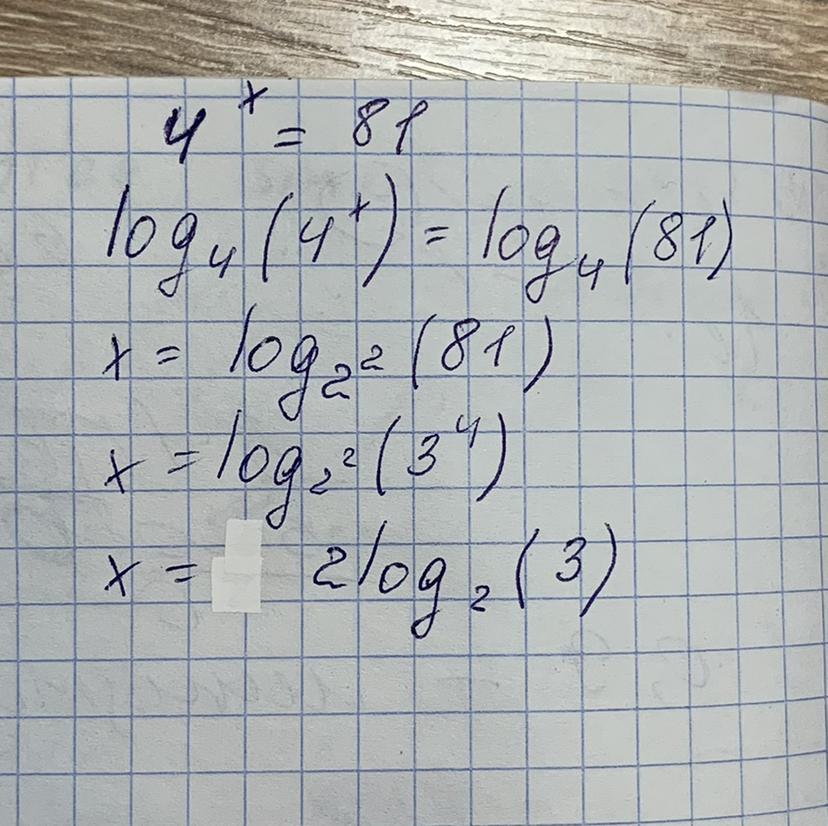 4ˣ = 81
log₄(4ˣ) = log₄(81)
x = log₂²(81)
x = log₂²(3⁴)
x = 2log₂(3)